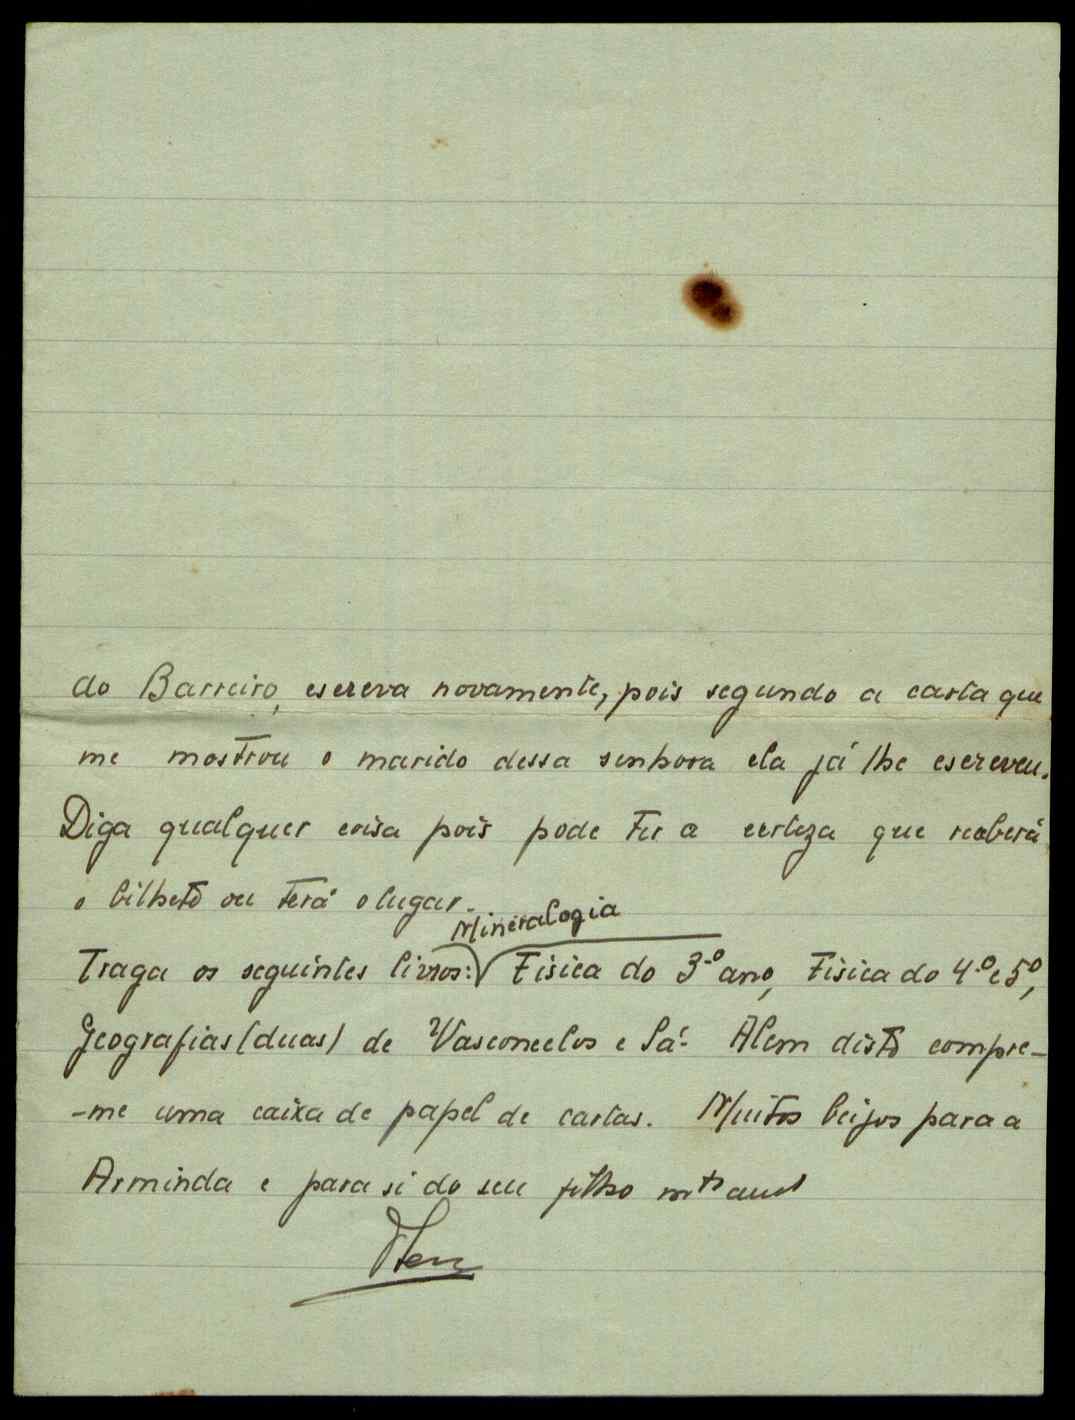 do Barreiro, escreva novamente, pois segundo a carta que
me mostrou o marido dessa senhora ela já lhe escreveu.
Diga qualquer coisa pois pode ter a certeza que receberá
o bilhete ou terá o lugar.
Mineralogia
Traga os seguintes livros: Fisica do 3.º ano, Fisica do 4.º e 5º,
Geografias (duas) de Vasconcelos e Sá. Alem disto compre-
-me uma caixa de papel de cartas. Muitos beijos para a
Arminda e para si do seu filho mto